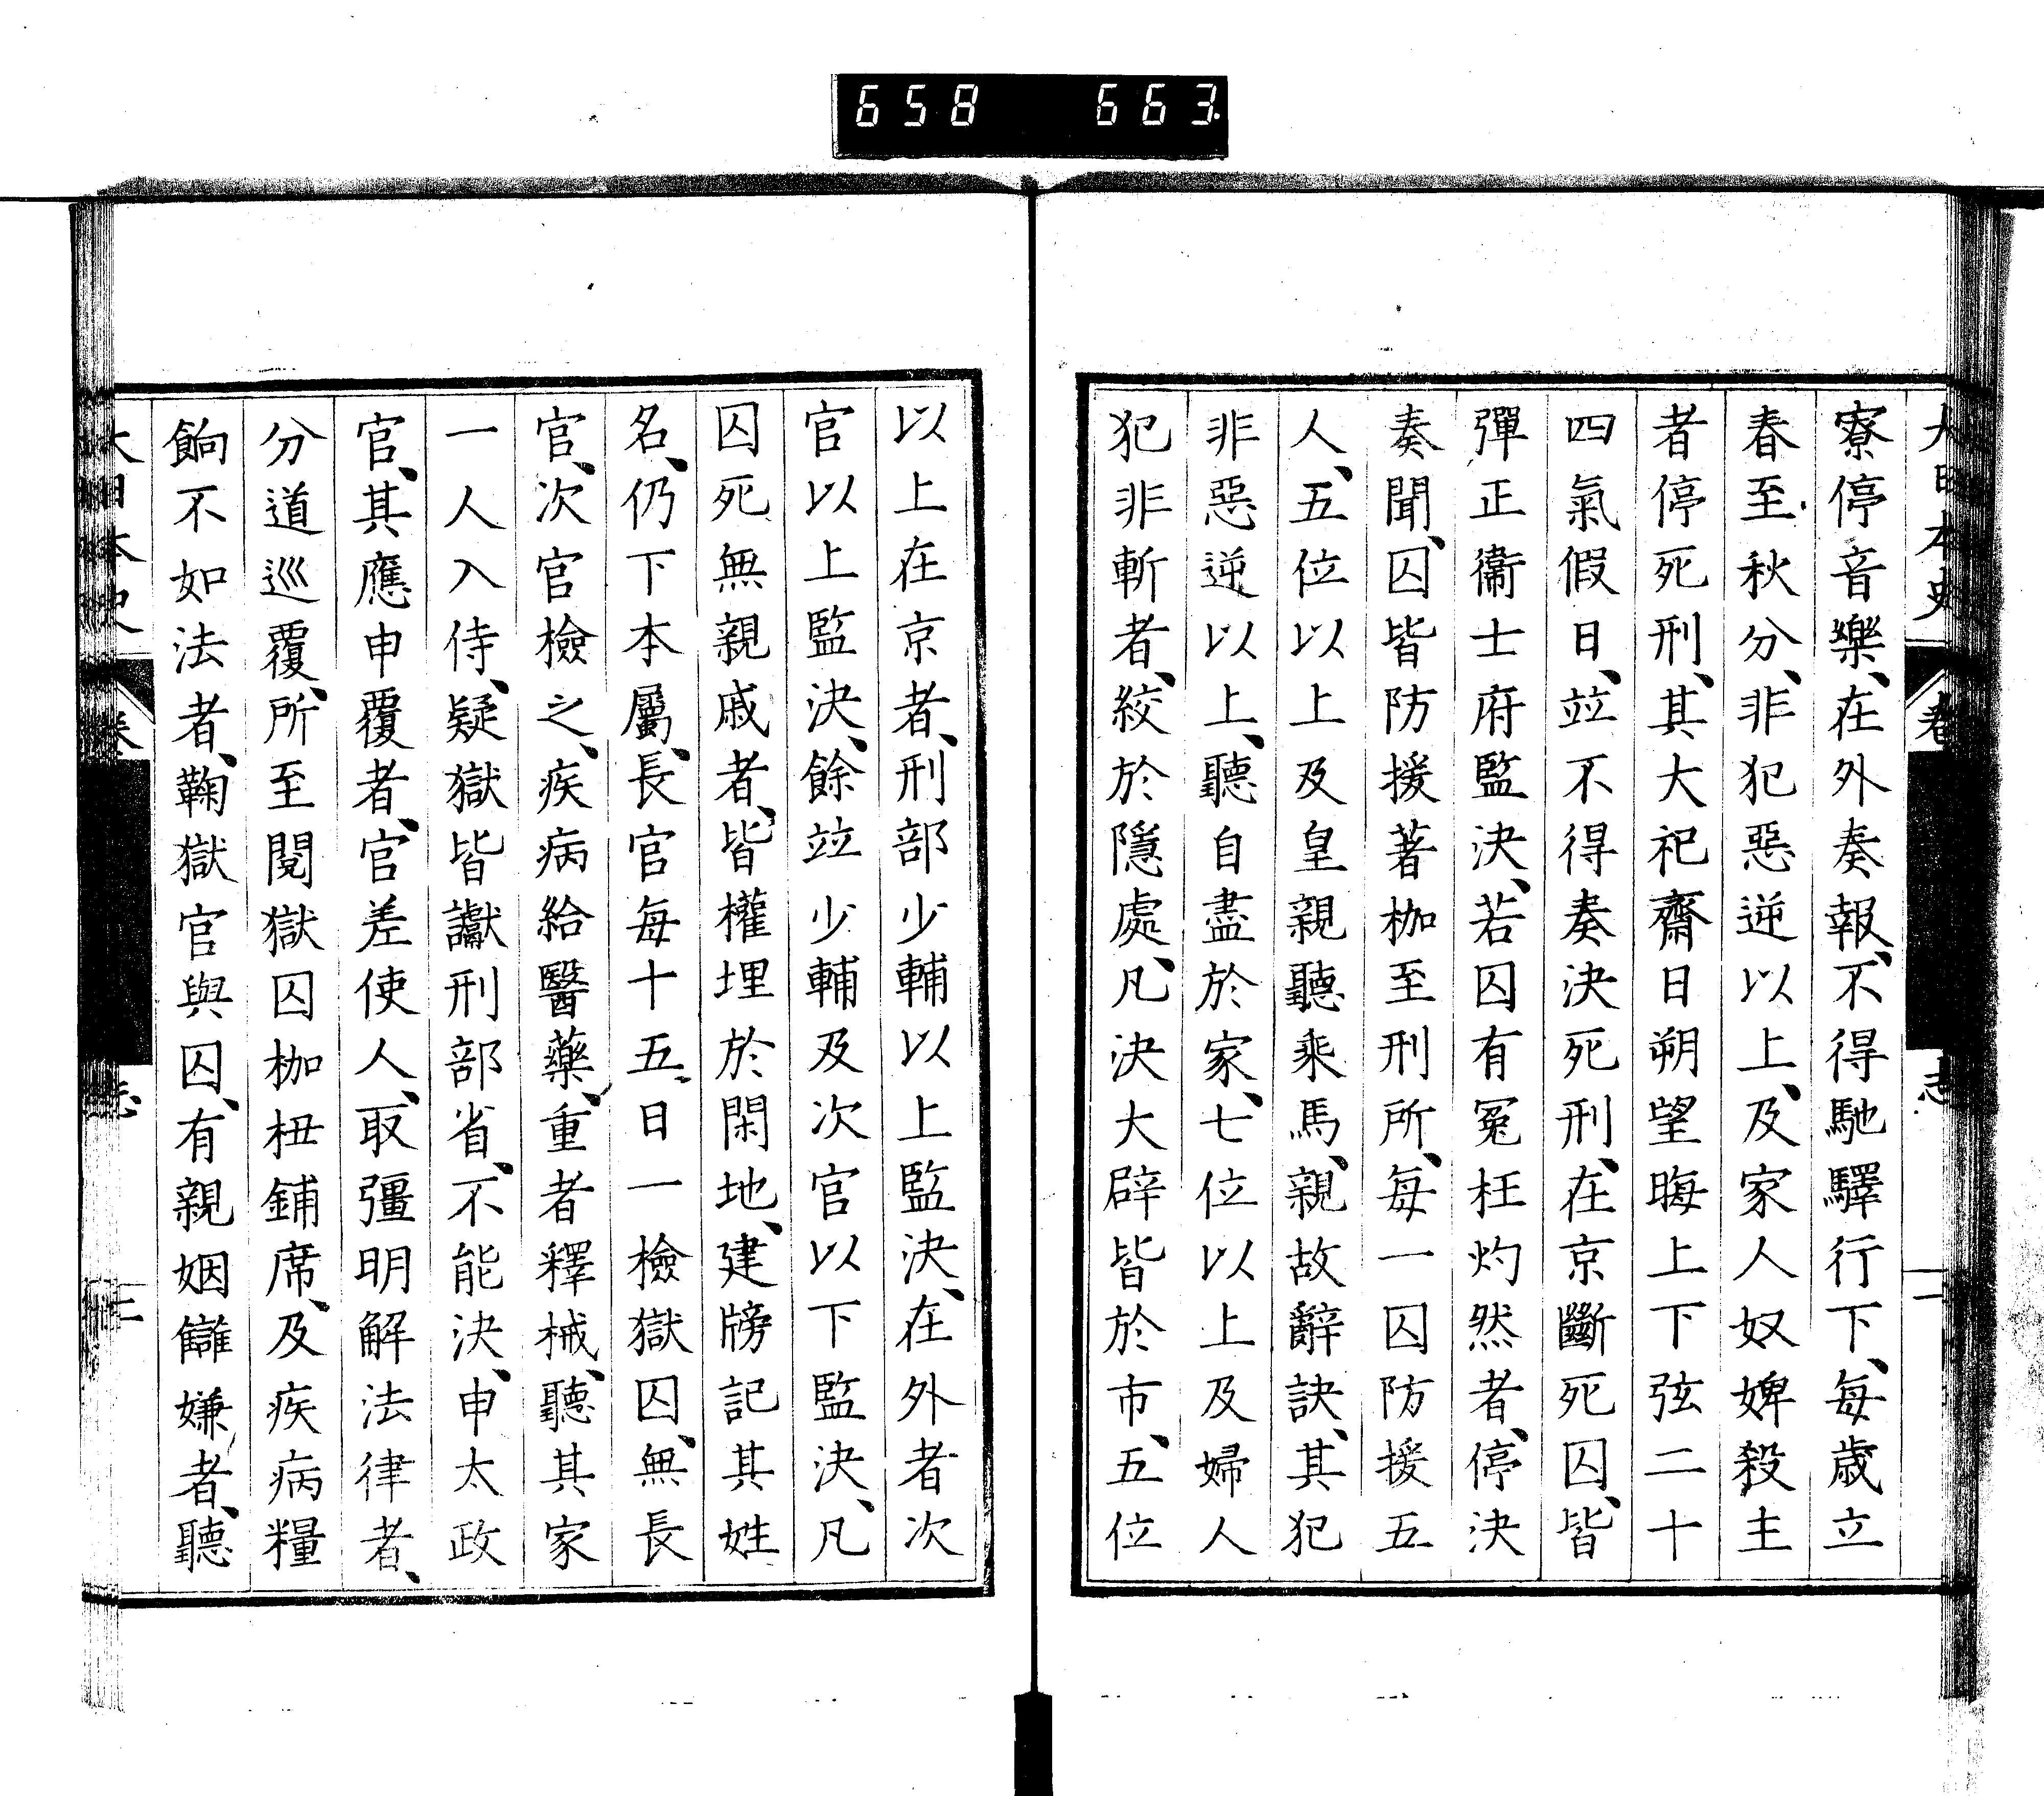 658 663.
大日本史 卷 志 二
寮停音樂、在外奏報、不得馳驛行下、每歲立
春至秋分、非犯惡逆以上、及家人奴婢殺主
者停死刑、其大祀齋日朔望晦上下弦二十
四氣假日、竝不得奏決死刑、在京斷死囚、皆
彈正衞士府監決、若囚有冤枉灼然者、停決
奏聞、囚皆防援著枷至刑所、每一囚防援五
人、五位以上及皇親聽乘馬、親故辭訣、其犯
非惡逆以上、聽自盡於家、七位以上及婦人
犯非斬者、絞於隱處、凡決大辟皆於市、五位
以上在京者、刑部少輔以上監決、在外者次
官以上監決、餘竝少輔及次官以下監決、凡
囚死無親戚者、皆權埋於閑地、建牓記其姓
名、仍下本屬、長官每十五日一檢獄囚、無長
官、次官檢之、疾病給醫藥、重者釋械、聽其家
一人入侍、疑獄皆讞刑部省、不能決、申太政
官、其應申覆者、官差使人、取彊明解法律者、
分道巡覆、所至閱獄囚枷杻鋪席、及疾病糧
餉不如法者、鞠獄官與囚、有親姻讎嫌者、聽
大日本史 卷 志 三